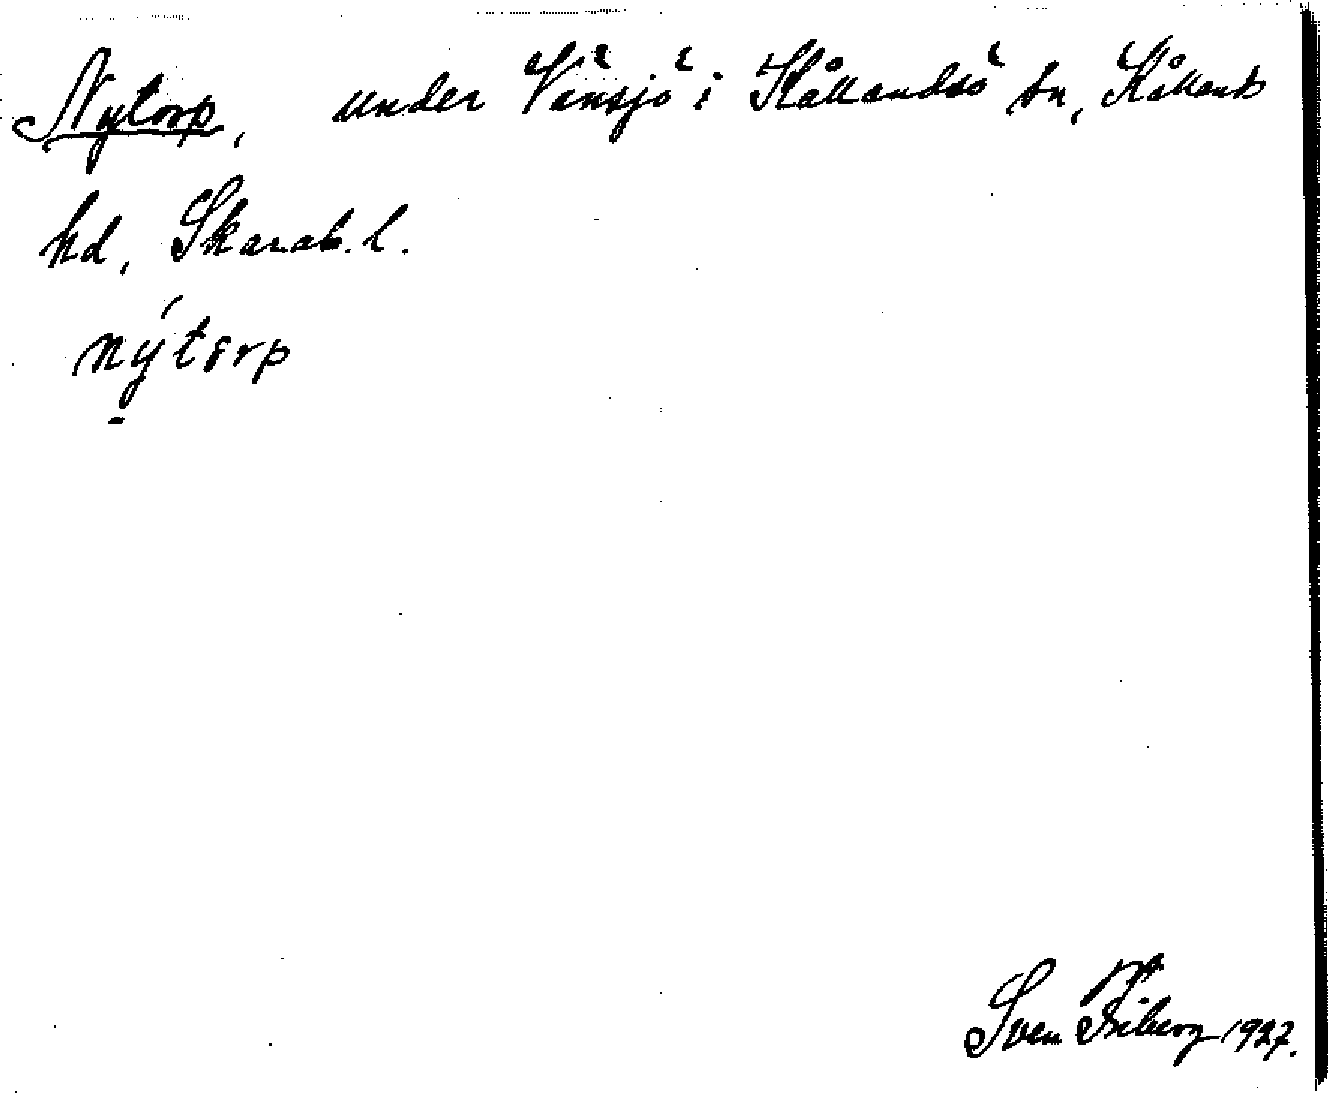 Nytorp, under Vänsjö i Kållandsö sn, Kållands
hd, Skarab. l.
nýtorp
Sven Friberg 1927.